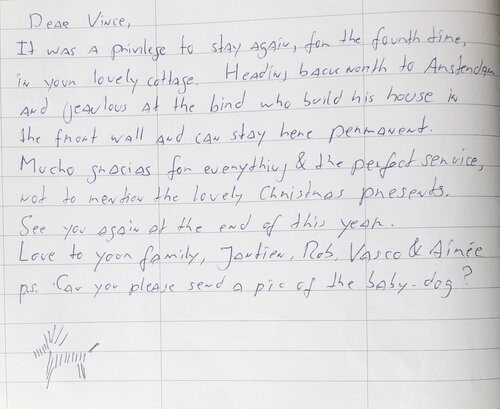 Dear Vince,
It was a privilege to stay again, for the fourth time,
in your lovely cottage. Heading back north to Amsterdam
and jeaulous at the bird who build his house in
the front wall and can stay here permanent.
Mucho gracias for everything & the perfect service,
not to mention the lovely Christmas presents.
See you again at the end of this year.
Love to your family, Jantien, Rob, Vasco & Aimée
ps. Can you please send a pic of the baby-dog?